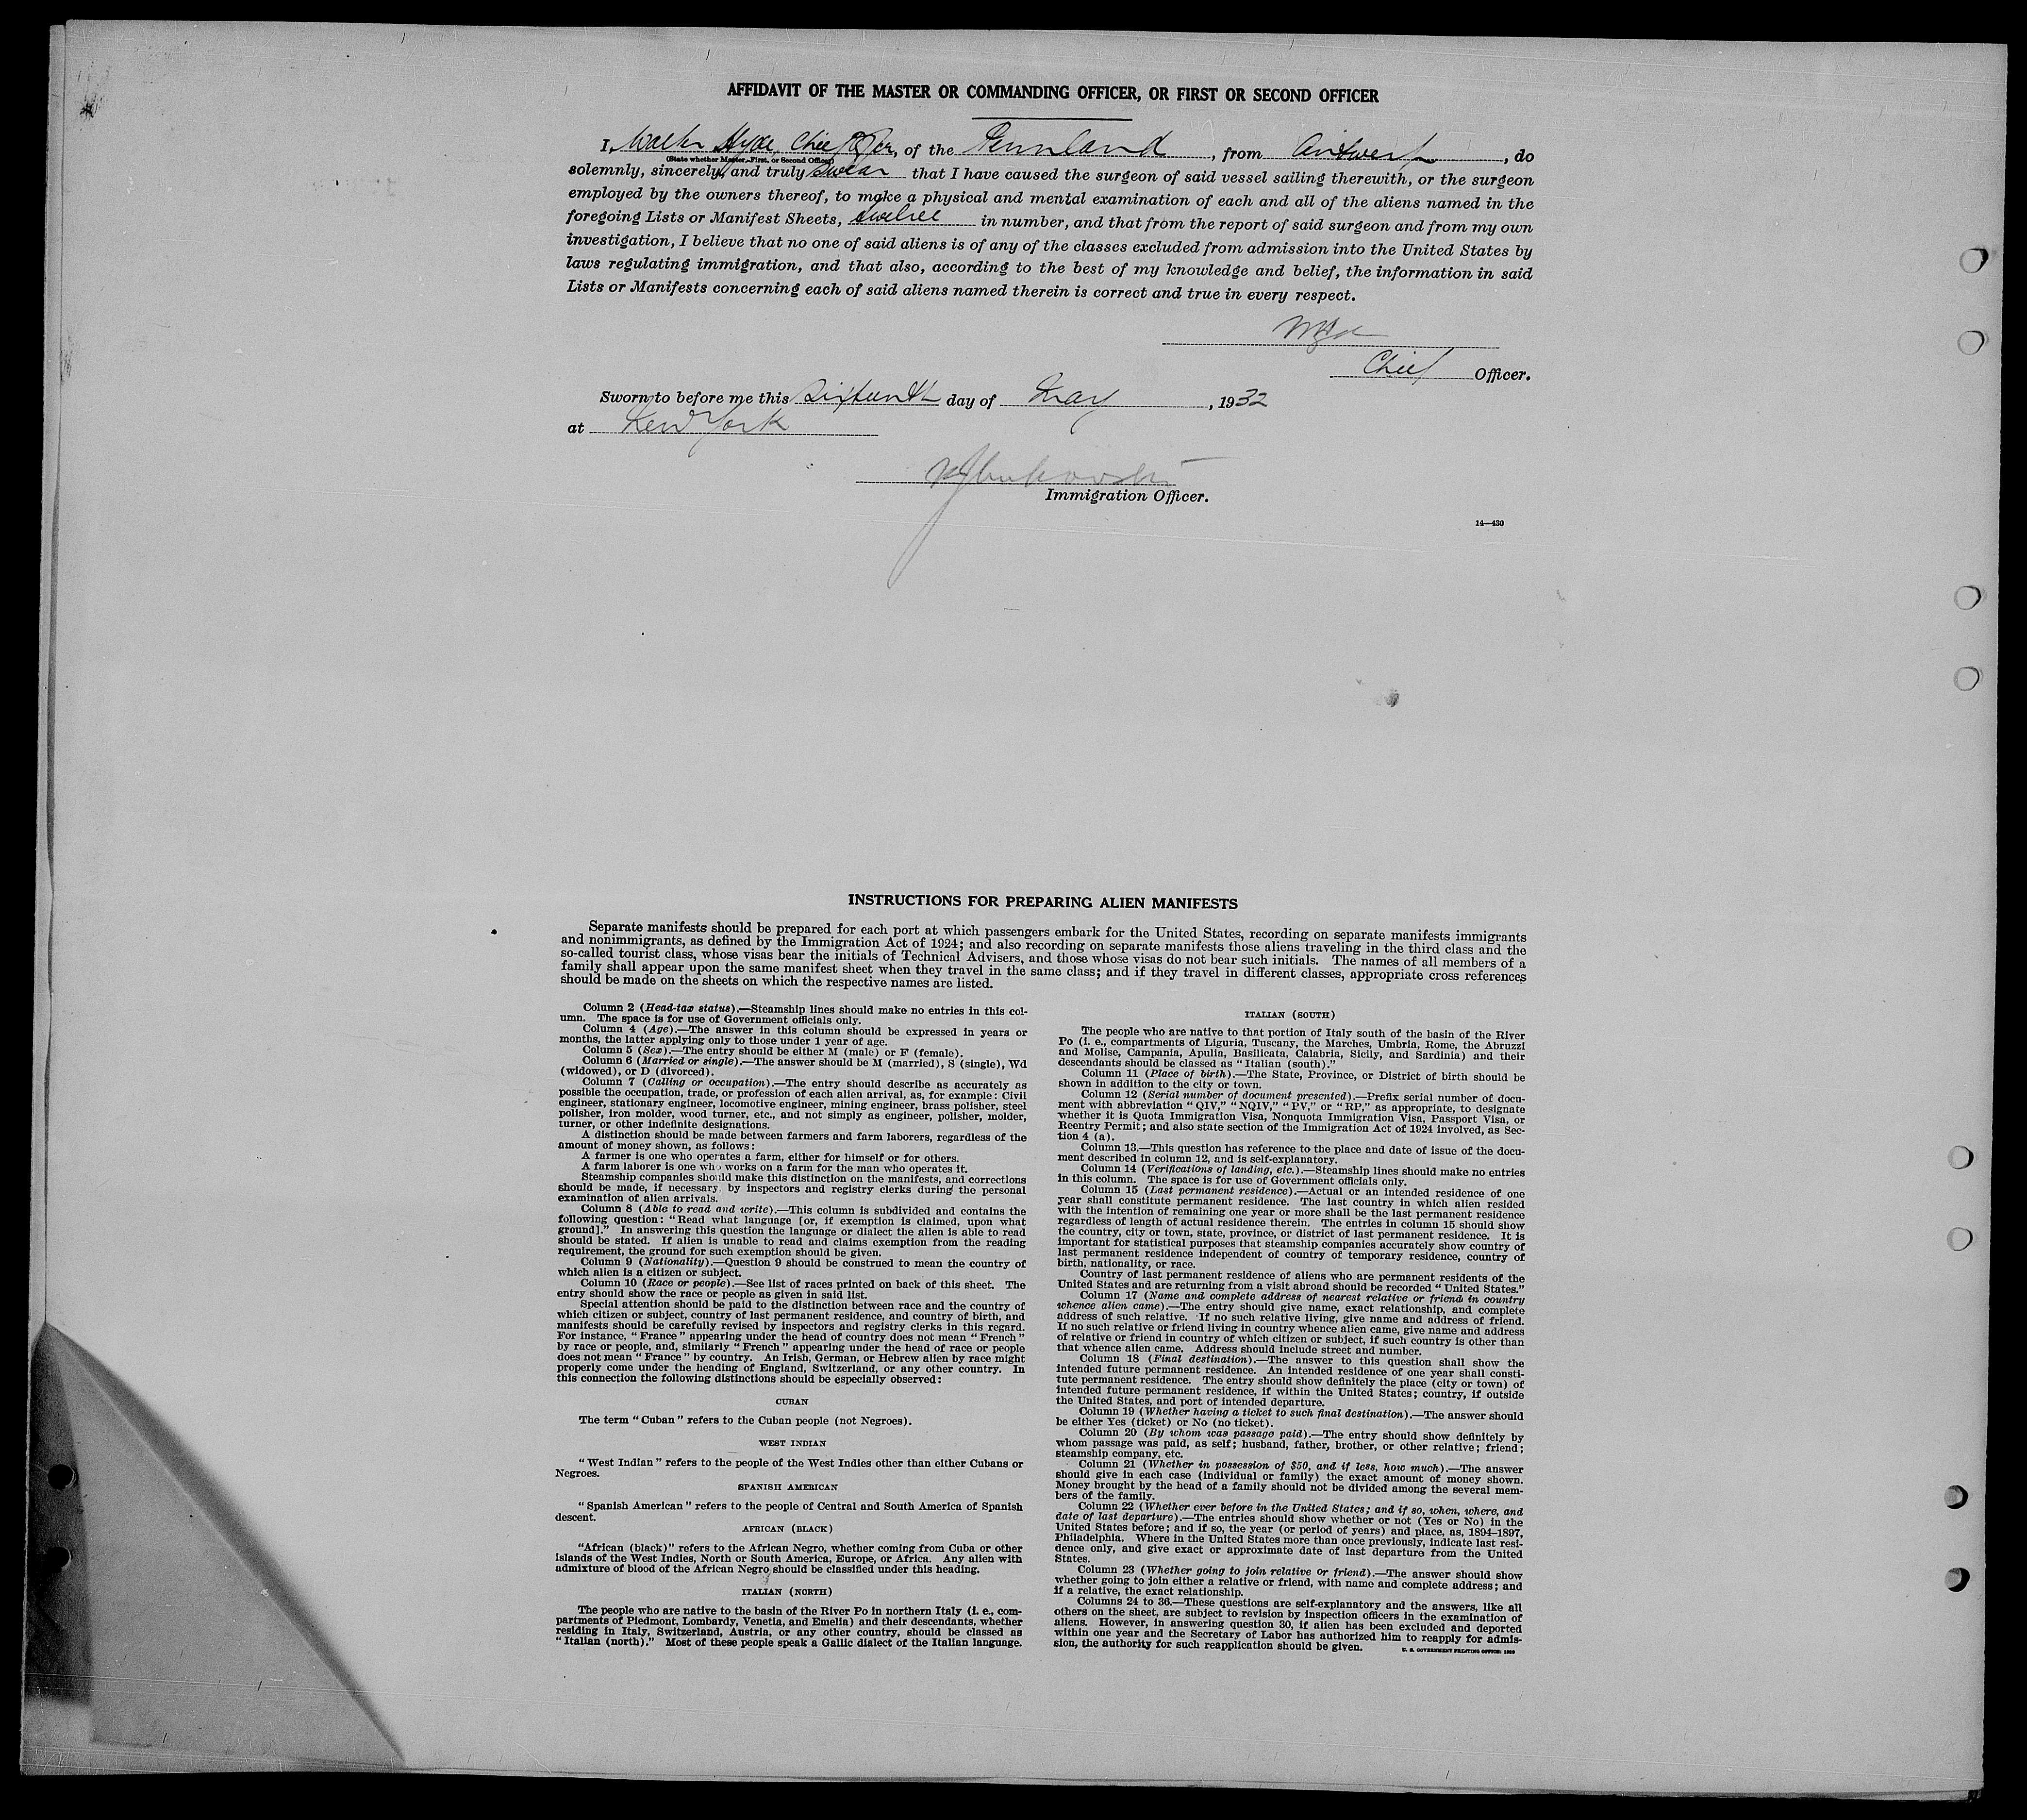 AFFIDAVIT OF THE MASTER OR COMMANDING OFFICER, OR FIRST OR SECOND OFFICER
I, Walter Hyde, Chief Offcer, of the Pennland, from Antwerp, do
(State whether Master, First, or Second Officer)
solemnly, sincerely, and truly swear that I have caused the surgeon of said vessel sailing therewith, or the surgeon
employed by the owners thereof, to make a physical and mental examination of each and all of the aliens named in the
foregoing Lists or Manifest Sheets, twelve in number, and that from the report of said surgeon and from my own
investigation, I believe that no one of said aliens is of any of the classes excluded from admission into the United States by
laws regulating immigration, and that also, according to the best of my knowledge and belief, the information in said
Lists or Manifests concerning each of said aliens named therein is correct and true in every respect.
Chief Officer.
Sworn to before me this sixteenth day of May, 1932
at New York
Immigration Officer.
14—430
INSTRUCTIONS FOR PREPARING ALIEN MANIFESTS
Separate manifests should be prepared for each port at which passengers embark for the United States, recording on separate manifests immigrants
and nonimmigrants, as defined by the Immigration Act of 1924; and also recording on separate manifests those aliens traveling in the third class and the
so-called tourist class, whose visas bear the initials of Technical Advisers, and those whose visas do not bear such initials. The names of all members of a
family shall appear upon the same manifest sheet when they travel in the same class; and if they travel in different classes, appropriate cross references
should be made on the sheets on which the respective names are listed.
Column 2 (Head-tax status).—Steamship lines should make no entries in this col-
umn. The space is for use of Government officials only.
Column 4 (Age).—The answer in this column should be expressed in years or
months, the latter applying only to those under 1 year of age.
Column 5 (Sex).—The entry should be either M (male) or F (female).
Column 6 (Married or single).—The answer should be M (married), S (single), Wd
(widowed), or D (divorced).
Column 7 (Calling or occupation).—The entry should describe as accurately as
possible the occupation, trade, or profession of each alien arrival, as, for example: Civil
engineer, stationary engineer, locomotive engineer, mining engineer, brass polisher, steel
polisher, iron molder, wood turner, etc., and not simply as engineer, polisher, molder,
turner, or other indefinite designations.
A distinction should be made between farmers and farm laborers, regardless of the
amount of money shown, as follows:
A farmer is one who operates a farm, either for himself or for others.
A farm laborer is one who works on a farm for the man who operates it.
Steamship companies should make this distinction on the manifests, and corrections
should be made, if necessary, by inspectors and registry clerks during the personal
examination of alien arrivals.
Column 8 (Able to read and write).—This column is subdivided and contains the
following question: "Read what language [or, if exemption is claimed, upon what
ground]." In answering this question the language or dialect the alien is able to read
should be stated. If alien is unable to read and claims exemption from the reading
requirement, the ground for such exemption should be given.
Column 9 (Nationality).—Question 9 should be construed to mean the country of
which alien is a citizen or subject.
Column 10 (Race or people).—See list of races printed on back of this sheet. The
entry should show the race or people as given in said list.
Special attention should be paid to the distinction between race and the country of
which citizen or subject, country of last permanent residence, and country of birth, and
manifests should be carefully revised by inspectors and registry clerks in this regard.
For instance, "France" appearing under the head of country does not mean "French"
by race or people, and, similarly "French" appearing under the head of race or people
does not mean "France" by country. An Irish, German, or Hebrew alien by race might
properly come under the heading of England, Switzerland, or any other country. In
this connection the following distinctions should be especially observed:
CUBAN
The term "Cuban" refers to the Cuban people (not Negroes).
WEST INDIAN
"West Indian" refers to the people of the West Indies other than either Cubans or
Negroes.
SPANISH AMERICAN
"Spanish American" refers to the people of Central and South America of Spanish
descent.
AFRICAN (BLACK)
"African (black)" refers to the African Negro, whether coming from Cuba or other
islands of the West Indies, North or South America, Europe, or Africa. Any alien with
admixture of blood of the African Negro should be classified under this heading.
ITALIAN (NORTH)
The people who are native to the basin of the River Po in northern Italy (i. e., com-
partments of Piedmont, Lombardy, Venetia, and Emelia) and their descendants, whether
residing in Italy, Switzerland, Austria, or any other country, should be classed as
"Italian (north)." Most of these people speak a Gallic dialect of the Italian language.
ITALIAN (SOUTH)
The people who are native to that portion of Italy south of the basin of the River
Po (i. e., compartments of Liguria, Tuscany, the Marches, Umbria, Rome, the Abruzzi
and Molise, Campania, Apulia, Basilicata, Calabria, Sicily, and Sardinia) and their
descendants should be classed as "Italian (south)."
Column 11 (Place of birth).—The State, Province, or District of birth should be
shown in addition to the city or town.
Column 12 (Serial number of document presented).—Prefix serial number of docu-
ment with abbreviation "QIV," "NQIV," "PV," or "RP," as appropriate, to designate
whether it is Quota Immigration Visa, Nonquota Immigration Visa, Passport Visa, or
Reentry Permit; and also state section of the Immigration Act of 1924 involved, as Sec-
tion 4 (a).
Column 13.—This question has reference to the place and date of issue of the docu-
ment described in column 12, and is self-explanatory.
Column 14 (Verifications of landing, etc.).—Steamship lines should make no entries
in this column. The space is for use of Government officials only.
Column 15 (Last permanent residence).—Actual or an intended residence of one
year shall constitute permanent residence. The last country in which alien resided
with the intention of remaining one year or more shall be the last permanent residence
regardless of length of actual residence therein. The entries in column 15 should show
the country, city or town, state, province, or district of last permanent residence. It is
important for statistical purposes that steamship companies accurately show country of
last permanent residence independent of country of temporary residence, country of
birth, nationality, or race.
Country of last permanent residence of aliens who are permanent residents of the
United States and are returning from a visit abroad should be recorded "United States."
Column 17 (Name and complete address of nearest relative or friend in country
whence alien came).—The entry should give name, exact relationship, and complete
address of such relative. If no such relative living, give name and address of friend.
If no such relative or friend living in country whence alien came, give name and address
of relative or friend in country of which citizen or subject, if such country is other than
that whence alien came. Address should include street and number.
Column 18 (Final destination).—The answer to this question shall show the
intended future permanent residence. An intended residence of one year shall consti-
tute permanent residence. The entry should show definitely the place (city or town) of
intended future permanent residence, if within the United States; country, if outside
the United States, and port of intended departure.
Column 19 (Whether having a ticket to such final destination).—The answer should
be either Yes (ticket) or No (no ticket).
Column 20 (By whom was passage paid).—The entry should show definitely by
whom passage was paid, as self; husband, father, brother, or other relative; friend;
steamship company, etc.
Column 21 (Whether in possession of $50, and if less, how much).—The answer
should give in each case (individual or family) the exact amount of money shown.
Money brought by the head of a family should not be divided among the several mem-
bers of the family.
Column 22 (Whether ever before in the United States; and if so, when, where, and
date of last departure).—The entries should show whether or not (Yes or No) in the
United States before; and if so, the year (or period of years) and place, as, 1894–1897,
Philadelphia. Where in the United States more than once previously, indicate last resi-
dence only, and give exact or approximate date of last departure from the United
States.
Column 23 (Whether going to join relative or friend).—The answer should show
whether going to join either a relative or friend, with name and complete address; and
if a relative, the exact relationship.
Columns 24 to 36.—These questions are self-explanatory and the answers, like all
others on the sheet, are subject to revision by inspection officers in the examination of
aliens. However, in answering question 30, if alien has been excluded and deported
within one year and the Secretary of Labor has authorized him to reapply for admis-
sion, the authority for such reapplication should be given.
U. S. GOVERNMENT PRINTING OFFICE: